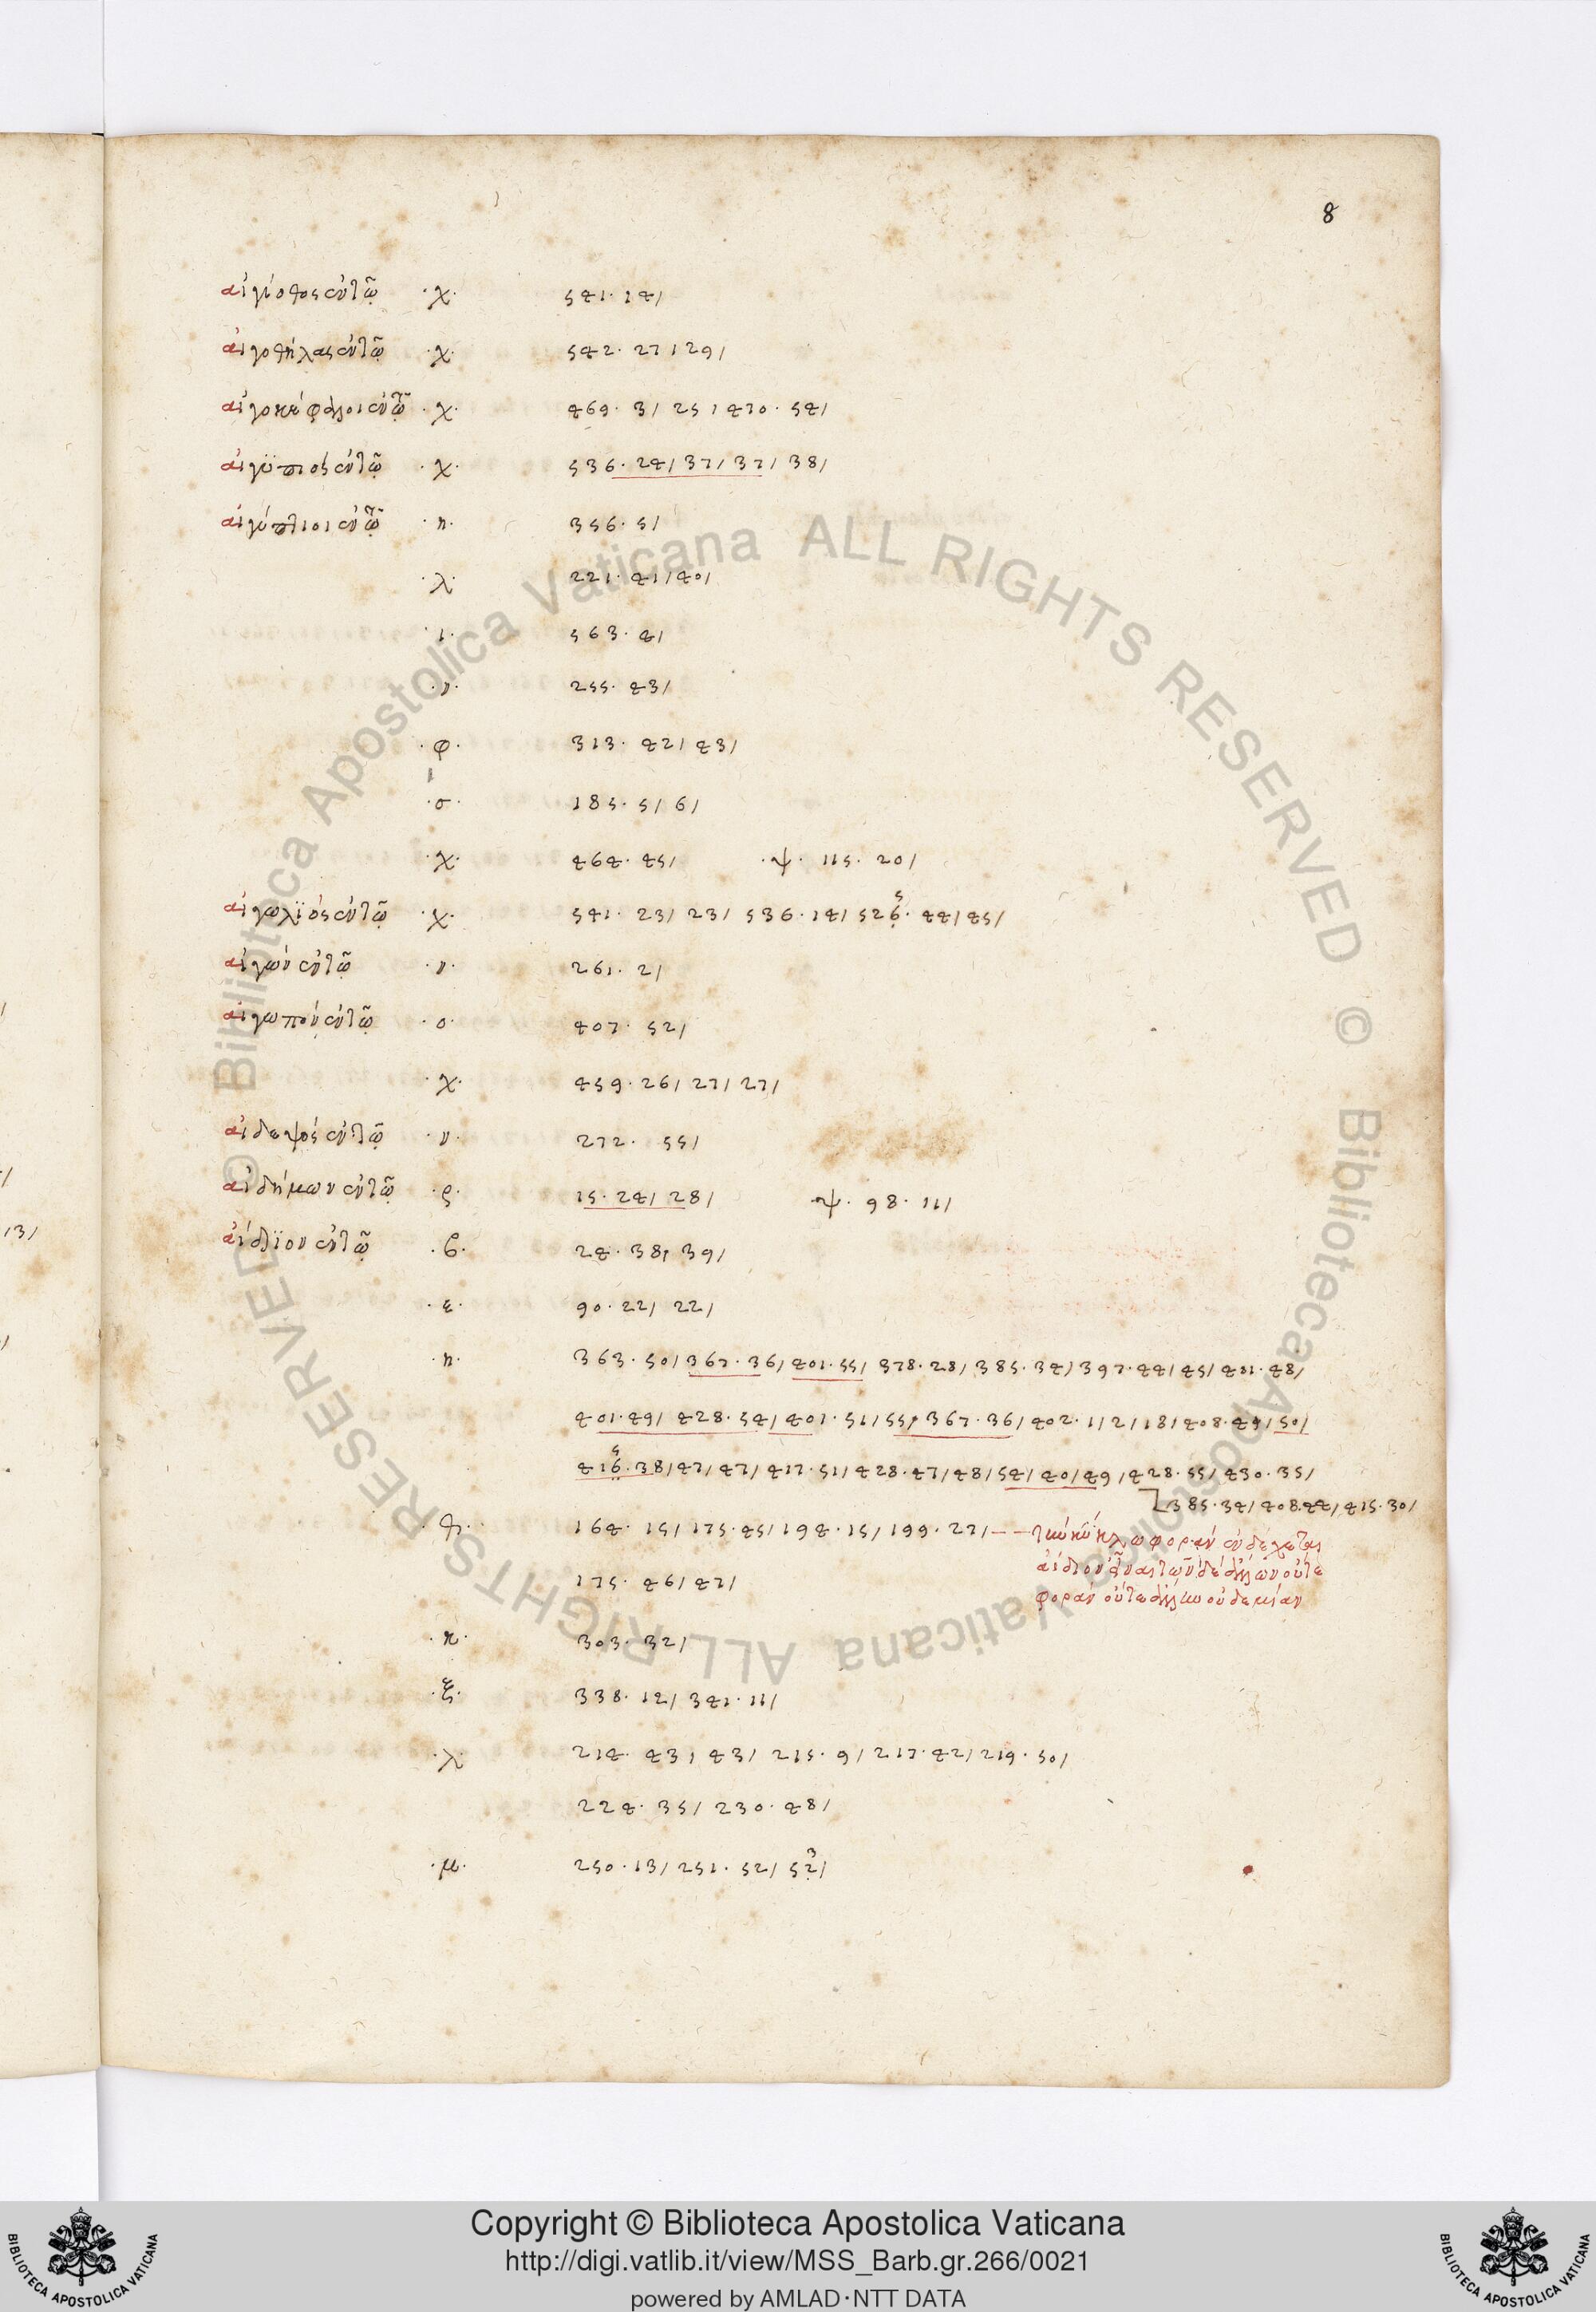 8
αἰγίοθος ἐν τῷ · χ · 541 · 14/
αἰγοθήλας ἐν τῷ · χ · 542 · 27/29/
αἰγοκέφαλοι ἐν τῷ · χ · 469 · 3/ 25/ 470 · 54/
αἰγϋπιὸς ἐν τῷ · χ · 536 · 24/ 37/ 37/ 38/
αἰγύπτιοι ἐν τῷ · η · 356 · 5/
· λ · 221 · 41/40/
· ι · 563 · 4/
· ν · 255 · 43/
· φ · 313 · 42/ 43/
· σ · 185 · 5/ 6/
· χ · 464 · 45/ · ψ · 115 · 20/
αἰγωλϊὸς ἐν τῷ · χ · 541 · 23/ 23/ 536 · 14/ 526 · 44/45/
5
αἰγῶν ἐν τῷ · ν · 261 · 2/
αἰγωπὸν ἐν τῷ · ο · 407 · 52/
· χ · 459 · 26/ 27/ 27/
αἰδεψὸς ἐν τῷ · ν · 272 · 55/
αἰδήμων ἐν τῷ · ς · 15 · 24/ 28/ ·ψ · 98 · 11/
ἀίδϊον ἐν τῷ · β · 24 · 38/ 39/
· ε · 90 · 22/ 22/
· η · 363 · 50/ 367 · 36/ 401 · 55/ 378 · 28/ 385 · 34/ 397 · 44/ 45/ 401 · 48/
401 · 49/ 428 · 54/ 401 · 51/ 55/ 367 · 36/ 402 · 1/2/18/ 408 · 49/ 50/
5
416 · 38/ 47/ 47/ 417 · 51/ 428 · 47/ 48/ 54/ 40/ 49/ 428 · 55/ 430 · 35/
385 · 34/ 408 · 44/ 415 · 30/
· θ · 164 · 15/ 175 · 45/ 194 · 15/ 199 · 27/ – – τὴν κύκλῳ φορὰν ἐνδέχεται
ἀίδιον εἶναι τῶν δὲ ἄλλων οὔτε
175 · 46/ 47/
φορὰν οὔτε ἄλλην οὐδεμίαν
· κ · 303 · 32/
· ξ · 338 · 12/ 341 · 11/
· λ · 214 · 43/ 43/ 215 · 9/ 217 · 42/ 219 · 50/
224 · 35/ 230 · 48/
· μ · 250 · 13/ 251 · 52/ 52/
3
/13/
© Biblioteca Apostolica Vaticana ALL RIGHTS RESERVED © Biblioteca Apostolica Vaticana ALL RIGHTS RESERVED
Copyright © Biblioteca Apostolica Vaticana
http://digi.vatlib.it/view/MSS_Barb.gr.266/0021
powered by AMLAD·NTT DATA
BIBLIOTECA APOSTOLICA VATICANA
BIBLIOTECA APOSTOLICA VATICANA